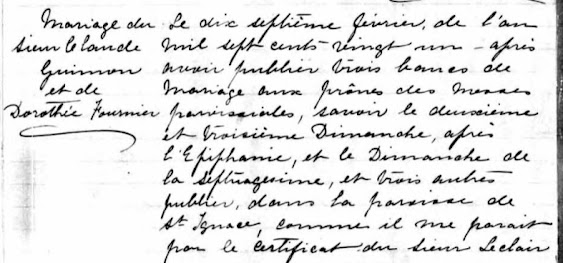 Mariage du
sieur Claude
Guimon
et de
Dorothée Fournier
Le dix septième février, de l'an
mil sept cents vingt un - après
avoir publier trois bancs de
Mariage aux prônes des Messes
paroissiales, savoir le deuxième
et troisième Dimanche, après
l'Epiphanie, et le Dimanche de
la septuagesime, et trois autres
publier, dans la paroisse de
St Ignace, comme il me parait
par le certificat du sieur Leclair